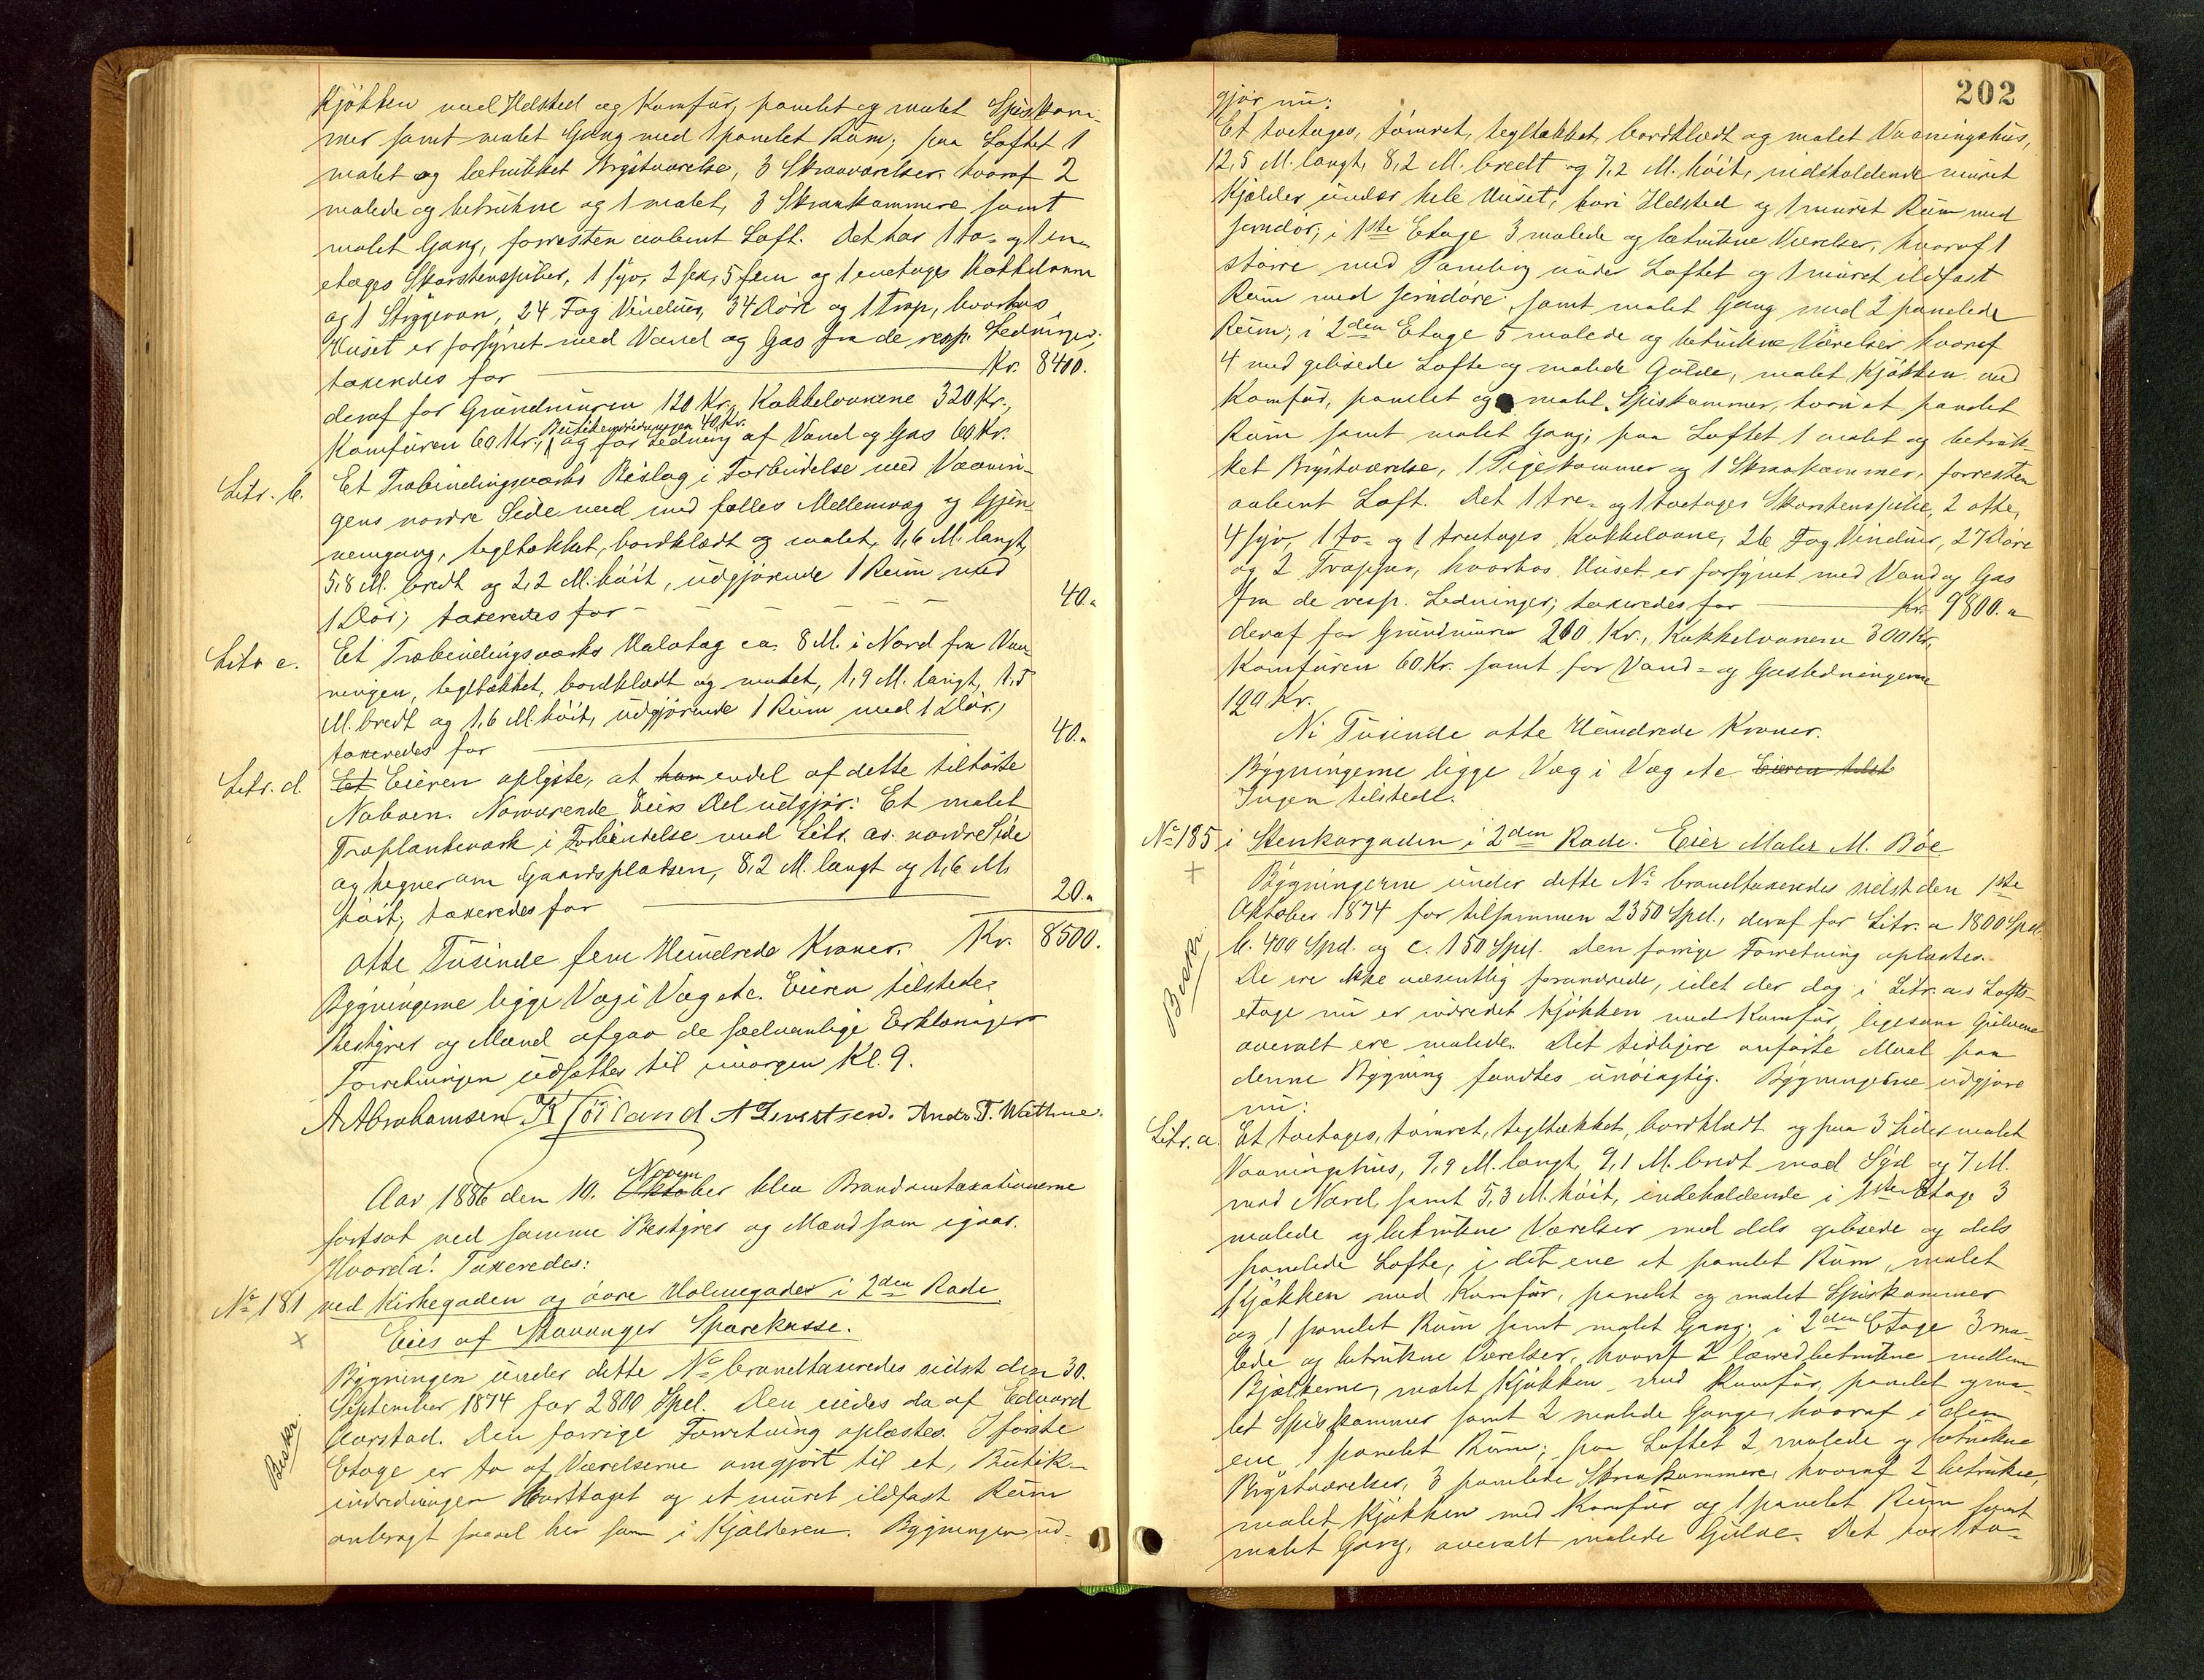 Kjökken med Ildsted og Komfur, panelet og malet Spiskam-
mer samt malet Gang med 1 panelet Rum; paa Loftet 1
malet og betrukket Brystværelse, 3 Skraaværelser hvoraf 2
malede og betrukne og 1 malet, 3 Skraakammere samt
malet Gang, forresten aabent Loft. Det har 1 to- og 1 en
etages Skorstenspiber, 1 syv, 2 sex, 5 fem og 1 enetages Kakkelovne
og 1 Strygeovn, 24 Fag Vinduer, 34 Döre og 1 Trap, hvorhos
Huset er forsynet med Vand og Gas fra de resp. Ledninger;
taxeredes for Kr. 8400.
deraf for Grundmuren 120 Kr., Kakkelovnene 320 Kr.,
Butikindredningen 40 Kr.
Komfuren 60 Kr., og for Ledning af Vand og Gas 60 Kr.
Litr. b. Et Træbindingsværks Bislag i Forbindelse med Vaanin-
gens nordre Side med fælles Mellemvæg og Gjen-
nemgang, tegltækket, bordklædt og malet, 1,6 M. langt,
5,8 M. bredt og 2,2 M. höit, udgjörende 1 Rum med
1 Dör; taxeredes for 40.
Litr c. Et Træbindingsværks Halvtag ca. 8 M. i Nord fra Vaa-
ningen, tegltækket, bordklædt og malet, 1,9 M. langt, 1,5
M. bredt og 1,6 M. höit, udgjörende 1 Rum med 1 Dör,
taxeredes for 40.
Litr. d Et Eieren oplyste, at han endel af dette tilhörte
Naboen. Nærværende Eiers Del udgjör: Et malet
Træplankeværk i Forbindelse med Litr. as. nordre Side
og hegner om Gaardspladsen, 8,2 M. langt og 1,6 M.
höit; taxeredes for 20.
Otte Tusinde fem Hundrede Kroner. Kr. 8500.
Bygningerne ligge Væg i Væg etc. Eieren tilstede.
Bestyrer og Mænd afgav de sædvanlige Erklæringer
Forretningen udsættes til imorgen Kl. 9.
A Abrahamsen A Sivertsen. Andr. T. Wathne.
Novem
Aar 1886 den 10. Oktober blev Brandomtaxationerne
fortsat ved samme Bestyrer og Mænd som igaar.
Hvorda! Taxeredes:
No 181 ved Kirkegaden og övre Holmegade i 2den Rode
Eies af Stavanger Sparekasse.
Bygningen under dette No brandtaxeredes sidst den 30.
September 1874 for 2800 Spd. Den eiedes da af Edvard
Aarstad. Den forrige Forretning oplæstes. I förste
Etage er to af Værelserne omgjört til et, Butik-
Beskr.
indredningen borttaget og et muret ildfast Rum
anbragt saavel her som i Kjælderen. Bygningen ud-
202
gjör nu:
Et toetages, tömret, tegltækket, bordklædt og malet Vaaningshus,
12,5 M. langt, 8,2 M. bredt og 7,2 M. höit, indeholdende muret
Kjælder under hele Huset, hvori Ildsted og 1 muret Rum med
Jerndör; i 1ste Etage 3 malede og betrukne Værelser, hvoraf 1
större med Paneling under Loftet og 1 muret ildfast
Rum med Jerndöre samt malet Gang med 2 panelede
Rum; i 2den Etage 5 malede og betrukne Værelser hvoraf
4 med gibsede Lofte og malede Gulve, malet Kjökken med
Komfur, panelet og malet Spiskammer, hvori et panelet
Rum samt malet Gang; paa Loftet 1 malet og betruk-
ket Brystværelse, 1 Pigekammer og 1 Skraakammer, forresten
aabent Loft. Det 1 tre- og 1 toetages Skorstenspibe, 2 otte,
4 syv, 1 to- og 1 treetages Kakkelovne, 26 Fag Vinduer, 27 Döre
og 2 Trapper, hvorhos Huset er forsynet med Vand og Gas
fra de resp. Ledninger; taxeredes for Kr. 9800.
deraf for Grundmuren 200 Kr., Kakkelovnene 300 Kr,
Komfuren 60 Kr. samt for Vand- og Gasledningerne
120 Kr.
Ni Tusinde otte Hundrede Kroner.
Bygningerne ligge Væg i Væg etc. Eieren tilst
Ingen tilstede.
No 185 i Stenkargaden i 2den Rode. Eier Maler M. Böe
Bygningerne under dette No brandtaxeredes sidst den 1ste
Oktober 1874 for tilsammen 2350 Spd., deraf for Litr. a 1800 Spd.
b. 400 Spd. og c. 150 Spd. Den forrige Forretning oplæstes.
De ere ikke væsentlig forandrede, idet der dog i Litr. as Lofts-
Beskr.
etage nu er indredet Kjökken med Komfur, ligesom Gulvene
overalt ere malede. Det tidligere anförte Maal paa
denne Bygning fandtes unöiagtig. Bygningerne udgjöre
nu:
Litr. a. Et toetages, tömret, tegltækket, bordklædt og paa 3 Sider malet
Vaaningshus, 9,9 M. langt, 9,1 M. bredt mod Syd og 7 M.
mod Nord, samt 5,3 M. höit, indeholdende i 1ste Etage 3
malede og betrukne Værelser med dels gibsede og dels
panelede Lofte, i det ene et panelet Rum, malet
Kjökken med Komfur, panelet og malet Spiskammer
og 1 panelet Rum samt malet Gang; i 2den Etage 3 ma-
lede og betrukne Værelser, hvoraf 2 lærredbetrukne mellem
Bjælkerne, malet Kjökken med Komfur, panelet og ma-
let Spiskammer samt 2 malede Gange, hvoraf i den
ene 1 panelet Rum; paa Loftet 2 malede og betrukne
Brystværelser, 3 panelede Skraakammere, hvoraf 2 betrukne,
malet Kjökken med Komfur og 1 panelet Rum samt
malet Gang, overalt malede Gulve. Det har 1 to-